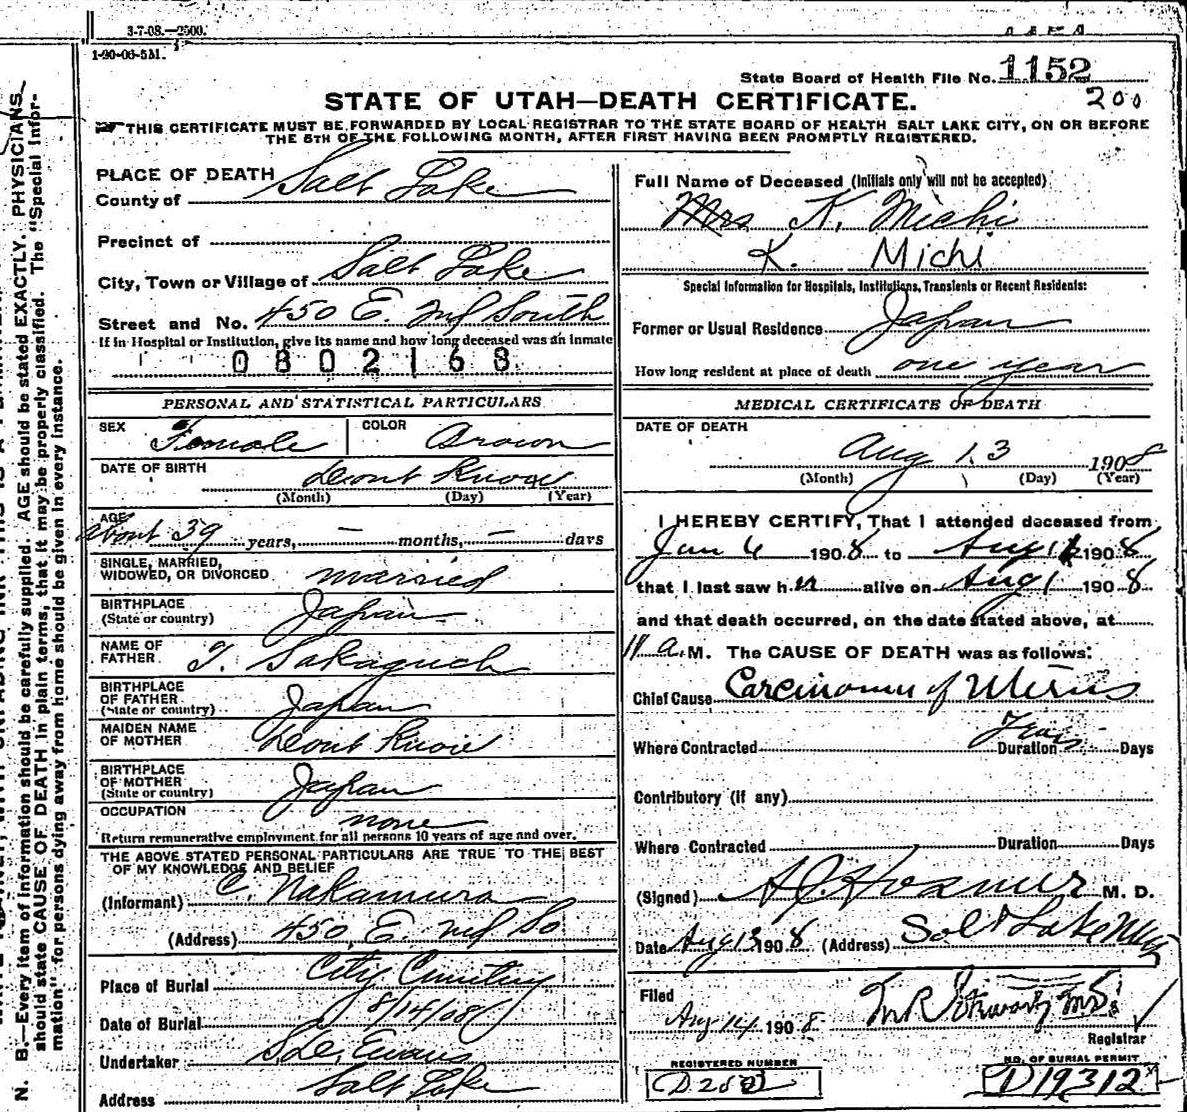 3-7-08.—2500.
1-20-06-5M.
State Board of Health File No. 1152
200
STATE OF UTAH—DEATH CERTIFICATE.
THIS CERTIFICATE MUST BE FORWARDED BY LOCAL REGISTRAR TO THE STATE BOARD OF HEALTH SALT LAKE CITY, ON OR BEFORE
THE 5TH OF THE FOLLOWING MONTH, AFTER FIRST HAVING BEEN PROMPTLY REGISTERED.
PLACE OF DEATH
County of Salt Lake
Precinct of
City, Town or Village of Salt Lake
Street and No. 450 E. 2nd South
If in Hospital or Institution, give its name and how long deceased was an inmate
0802168
PERSONAL AND STATISTICAL PARTICULARS
SEX Female COLOR Brown
DATE OF BIRTH Dont Know
(Month) (Day) (Year)
AGE about 39 years, — months, — days
SINGLE, MARRIED,
WIDOWED, OR DIVORCED married
BIRTHPLACE
(State or country) Japan
NAME OF
FATHER T. Sakaguchi
BIRTHPLACE
OF FATHER
(State or country) Japan
MAIDEN NAME
OF MOTHER Dont Know
BIRTHPLACE
OF MOTHER
(State or country) Japan
OCCUPATION none
Return remunerative employment for all persons 10 years of age and over.
THE ABOVE STATED PERSONAL PARTICULARS ARE TRUE TO THE BEST
OF MY KNOWLEDGE AND BELIEF
(Informant) C. Nakamura
(Address) 450 E. 2nd So
Place of Burial City Cemetery
Date of Burial 8/14/08
Undertaker S. D. Evans
Address Salt Lake
Full Name of Deceased (Initials only will not be accepted)
Mrs K. Michi
K. Michi
Special Information for Hospitals, Institutions, Transients or Recent Residents:
Former or Usual Residence Japan
How long resident at place of death one year
MEDICAL CERTIFICATE OF DEATH
DATE OF DEATH
Aug 13 1908
(Month) (Day) (Year)
I HEREBY CERTIFY, That I attended deceased from
Jan 6 1908 to Aug 1908
that I last saw her alive on Aug 1 1908
and that death occurred, on the date stated above, at
11 a. M. The CAUSE OF DEATH was as follows:
Chief Cause Carcinoma of Uterus
Where Contracted Duration Days
Contributory (if any)
Where Contracted Duration Days
(Signed) Hosmer M. D.
Date Aug 13 1908 (Address) Salt Lake
Filed
Aug 14 1908
Registrar
REGISTERED NUMBER
NO. OF BURIAL PERMIT
D19312
N. B.—Every item of information should be carefully supplied. AGE should be stated EXACTLY. PHYSICIANS
should state CAUSE OF DEATH in plain terms, that it may be properly classified. The "Special Infor-
mation" for persons dying away from home should be given in every instance.